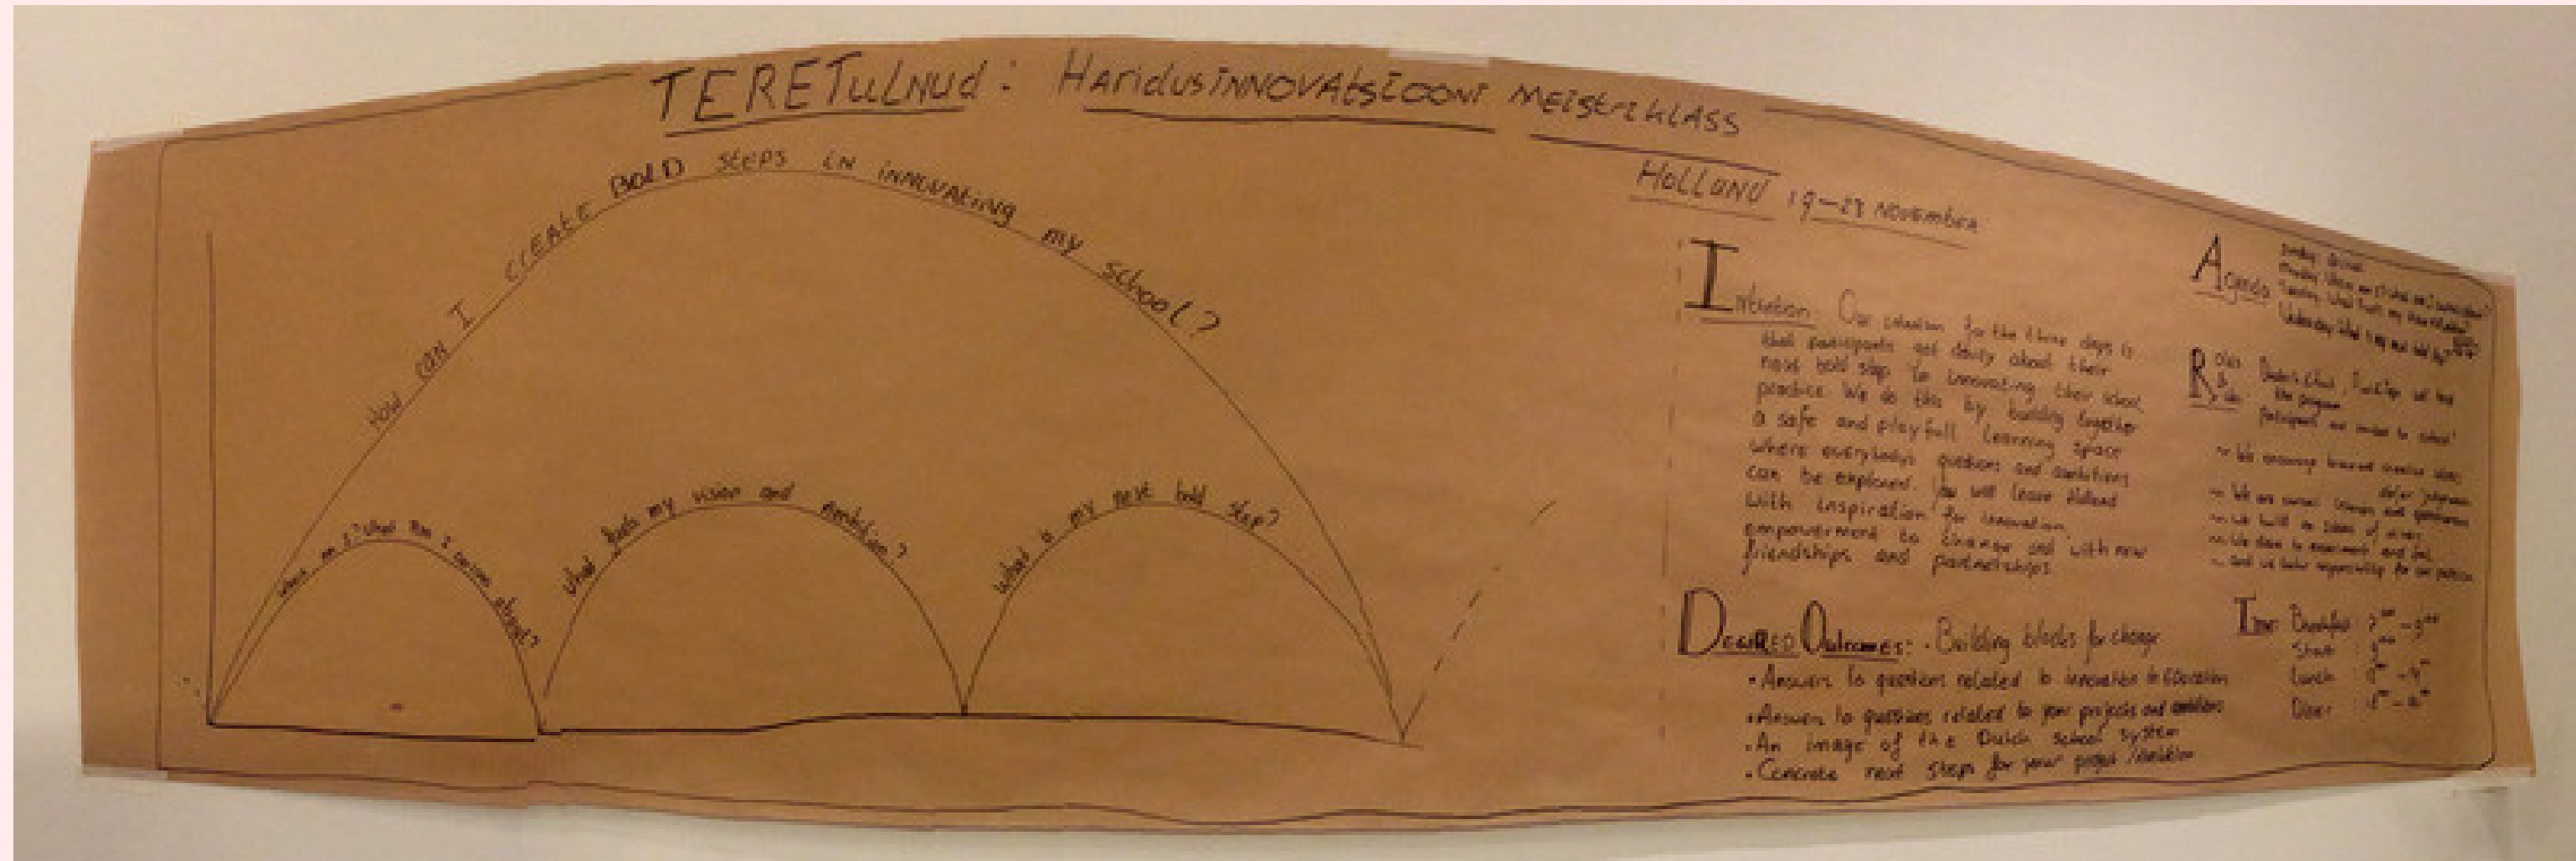 TERETULNUD: HARIDUSINNOVATSIOONI MEISTRIKLASS
HOLLAND 19-23 NOVEMBER
HOW CAN I CREATE BOLD STEPS IN INNOVATING MY SCHOOL?
Where am I? What am I curious about?
What fuels my vision and ambition?
What is my next bold step?
Intention: Our intention for the three days is
that participants get clarity about their
next bold step in innovating their school
practice. We do this by building together
a safe and playfull learning space
where everybody's questions and ambitions
can be explored. You will leave Holland
with inspiration for innovation,
empowerment to change and with new
friendships and partnerships
DESIRED Outcomes: • Building blocks for change
• Answers to questions related to innovation in Education
• Answers to questions related to your projects and ambitions
• An image of the Dutch school system
• Concrete next steps for your project /
Agenda
Sunday:
Monday: Where am I? What am I curious about?
Tuesday: What fuels my vision
Wednesday: What is my next bold step?
Roles
&
the program
participants are invited to
~ We encourage
defer judgement
~ We are curious
~ We build on ideas of others
~ We dare to experiment and fail
~ and we take responsibility for our
Time: Breakfast:
Start:
Lunch:
Diner: